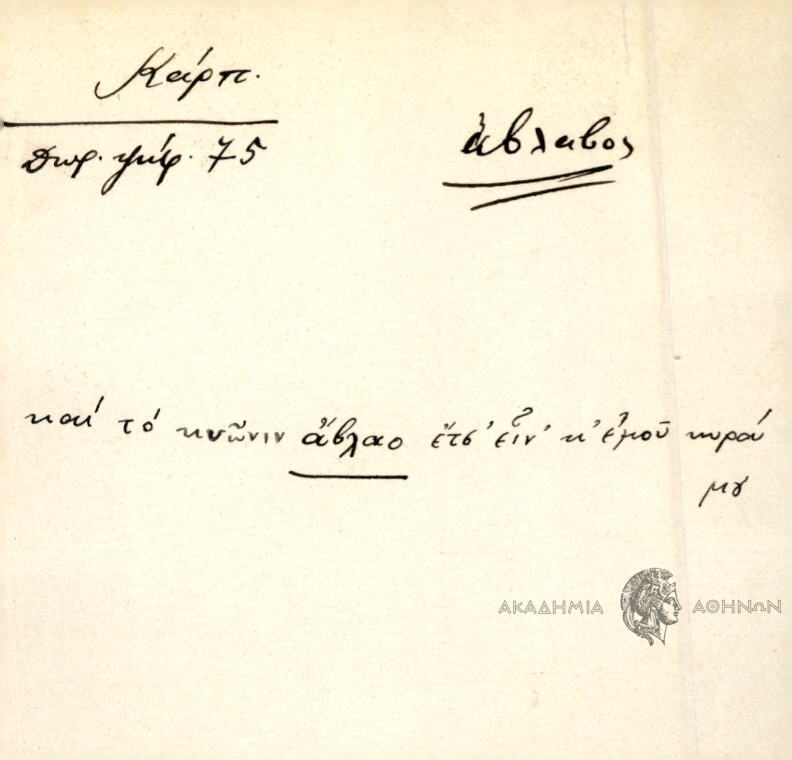 Κάρπ.
Δωρ. ψήφ. 75
ἀβλαβος
καί τό κνῶνιν ἄβλαο ἔτσ' εἶν' κ' ἐμοῦ κυρά
μου
ΑΚΑΔΗΜΙΑ ΑΘΗΝΩΝ